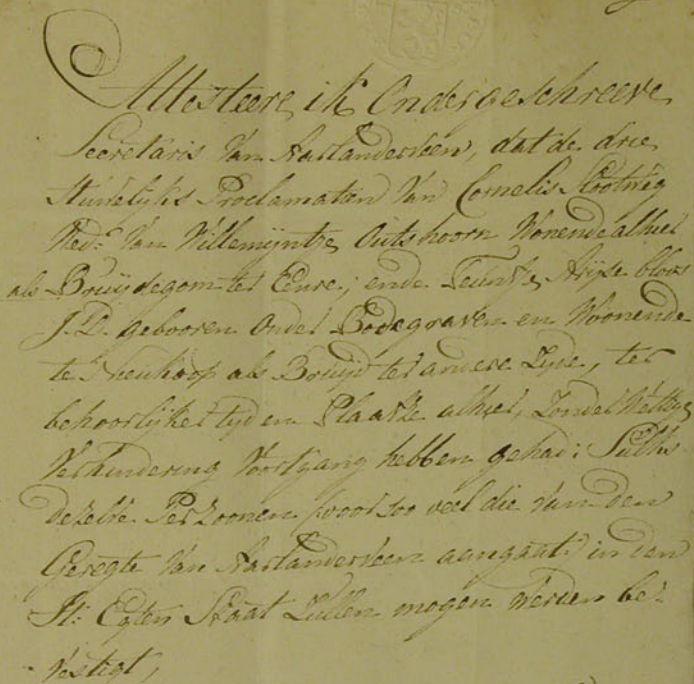 Attesteere ik Ondergeschreeve
Secretaris Van Aarlanderveen, dat de drie
Huwelijks Proclamatien Van Cornelis Slootweg
Wed: Van Willemijntje Outshoorn Wonende alhier
als Bruijdegom ter Eenre; ende Teuntje Arijse
J.D. gebooren onder Bodegraven en Woonende
te als Bruijd ter andere Zyde, ter
behoorlijker tyd en Plaatze alhier, Zonder Wettige
Verhindering Voortgang hebben gehad: Sulks
dezelve Perzoonen (voor soo veel die Van den
Geregte Van Aarlanderveen aangaat) in den
H: Egten Staat Zullen mogen werden be-
vestigt,